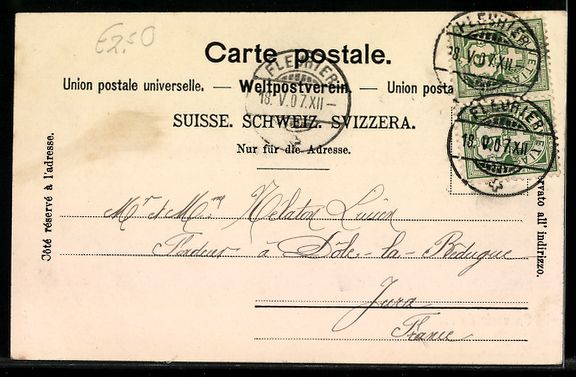 E2.50
Carte postale.
Union postale universelle. — Weltpostverein. — Union posta
SUISSE. SCHWEIZ. SVIZZERA.
Nur für die Adresse.
Côté réservé à l'adresse.
ervato all' indirizzo.
FLEURIER
18.V.07.XII—
FLEURIER
18.V.07.XII—
FLEURIER
18.V.07.XII—
Mr et Mme Lucien
à Dôle-la-Bédugue
Jura
France